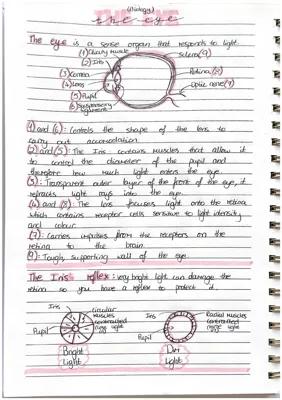 (Biology)
the eye
The eye is a sense organ that responds to light.
(1) Ciliary muscle
sclera (9)
(2) Iris
(3) Cornea
Retina (8)
(4) Lens
Optic nerve (7)
(5) Pupil
(6) Suspensory ligaments
(1) and (6): Controls the shape of the lens to
carry out accomodation
(2) and (5): The Iris contains muscles that allow it
to control the diameter of the pupil and
therefore how much light enters the eye.
(3): Transparent outer layer of the front of the eye, it
refracts light rays into the eye.
(4) and (8): The lens focuses light onto the retina
which contains receptor cells sensitive to light intensity
and colour.
(7): Carries impulses from the receptors on the
retina to the brain.
(9): Tough, supporting wall of the eye.
The Iris reflex: very bright light can damage the
retina so you have a reflex to protect it.
Iris
circular
muscles
contracted
Pupil
Bright
Light
Iris
Radial muscles
contracted
Pupil
Dim
Light